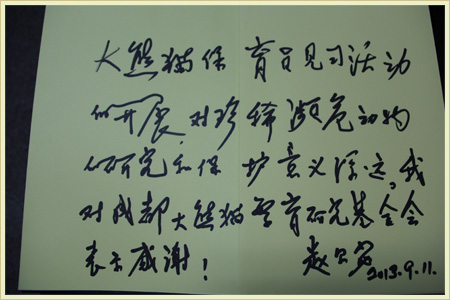 大熊猫保育员见习活动
的开展,对珍稀濒危动物
的研究和保护意义深远,我
对成都大熊猫繁育研究基金会
表示感谢!
赵 2013.9.11.